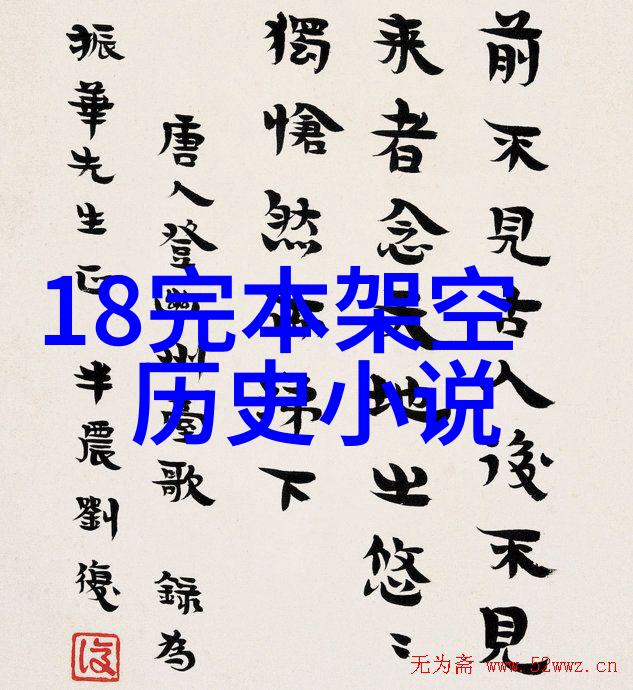 前不見古人後不見
来者念天地之悠〻
獨愴然而涕下
唐人登幽州臺歌 錄為
振華先生正 半農劉復
18完本架空
历史小说
无为斋 www.52wwz.cn